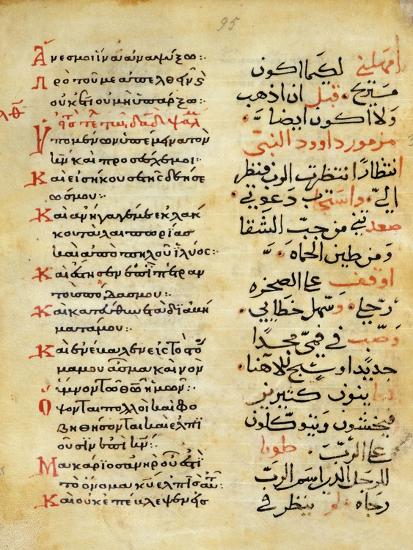 95
Ἄνες μοι ἵνα ἀναψύξω:
Πρὸ τοῦ με ἀπελθεῖν
οὐκέτι οὐ μὴ ὑπάρξω:
λθ
Ὑπομένων ὑπέμεινα τὸν
κ̅ν̅ καὶ προσέσχε μοι:
Καὶ εἰσήκουσε τῆς δεήσε
ώς μου:
Καὶ ἀνήγαγέ με ἐκ λάκ
κου ταλαιπωρίας
καὶ ἀπὸ πηλοῦ ἰλύος:
Καὶ ἔστησεν ἐπὶ πέτραν
τοὺς πόδας μου:
Καὶ κατεύθυνε τὰ διαβή
ματά μου:
Καὶ ἐνέβαλεν εἰς τὸ στό
μα μου ᾆσμα καινὸν
ὕμνον τῷ θ̅ω̅ ἡμῶν:
Ὄψονται πολλοὶ καὶ φο
βηθήσονται καὶ ἐλπι
οῦσιν ἐπὶ κ̅ν̅:
Μακάριος ἀνὴρ οὗ ἐστι
τὸ ὄνομα κ̅υ̅ ἐλπὶς αὐτοῦ
Καὶ οὐκ ἐπέβλεψεν εἰς
امهلني لكيما اكون
مستريح قبل ان اذهب
ولا اكون ايضا
مزمور داوود النبي
انتظارا انتظرت الرب فنظر
الي دعوتي
صعدني من جب الشقا
ومن طين الحماه
اوقف على الصخره
رجلاه وسهل خطاي
وصب في فمي مجدا
جديدا وتسبيح لالاهنا
كثيرين
فيخشون ويتوكلون
على الرب طوبا
للرجل الذي اسم الرب
رجاه ينظر في